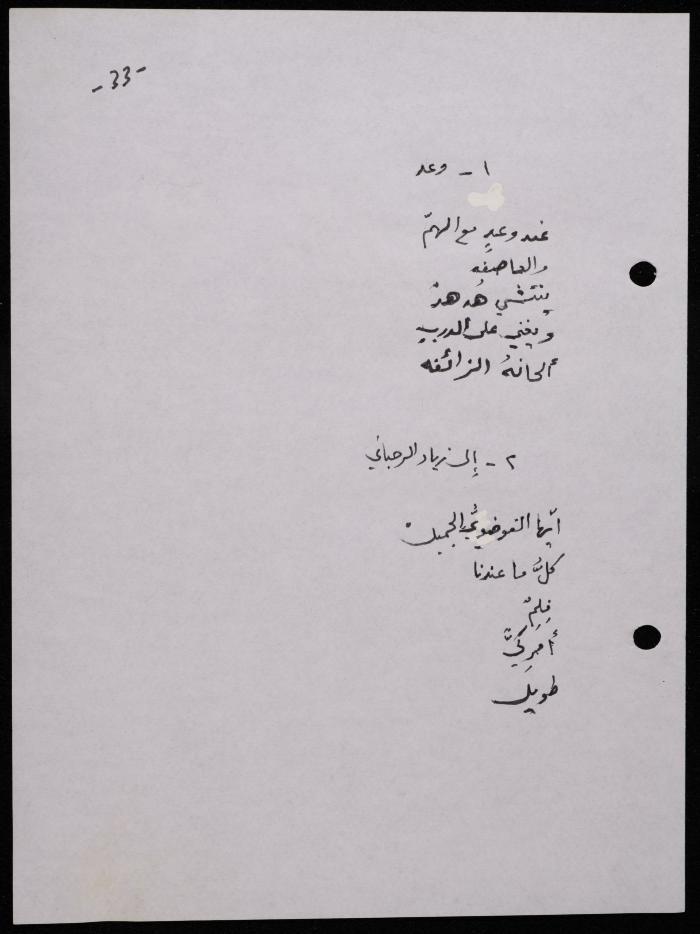 -33-
١ - وعد
عند وعدٍ مع الهمّ
والعاصفه
ينتشي هُدهدٌ
ويغني على الدربِ
ألحانهُ الزائفه
٢ - إلى زياد الرحباني
أيّها الفوضويُّ الجميلْ
كلُّ ما عندنا
فِلِمٌ
أمرِكيٌّ
طويلْ